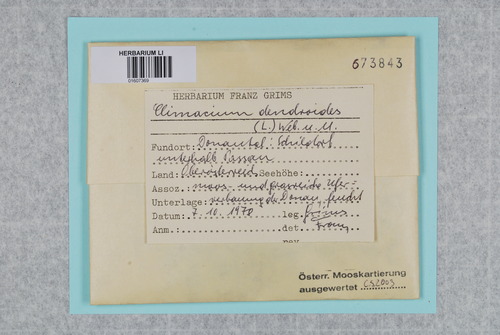 HERBARIUM LI
01607369
673843
HERBARIUM FRANZ GRIMS
Climacium dendroides
(L.) Web. u. M.
Fundort: Donautal: Schildorf
unterhalb Passau
Land: Oberösterreich Seehöhe:
Assoz. moos- und grasreiche Ufer-
Unterlage: verbauung der Donau, feucht
Datum: 7.10.1970 leg. Grims
Anm.: det. Grims
rev.
Österr. Mooskartierung
ausgewertet CS2003